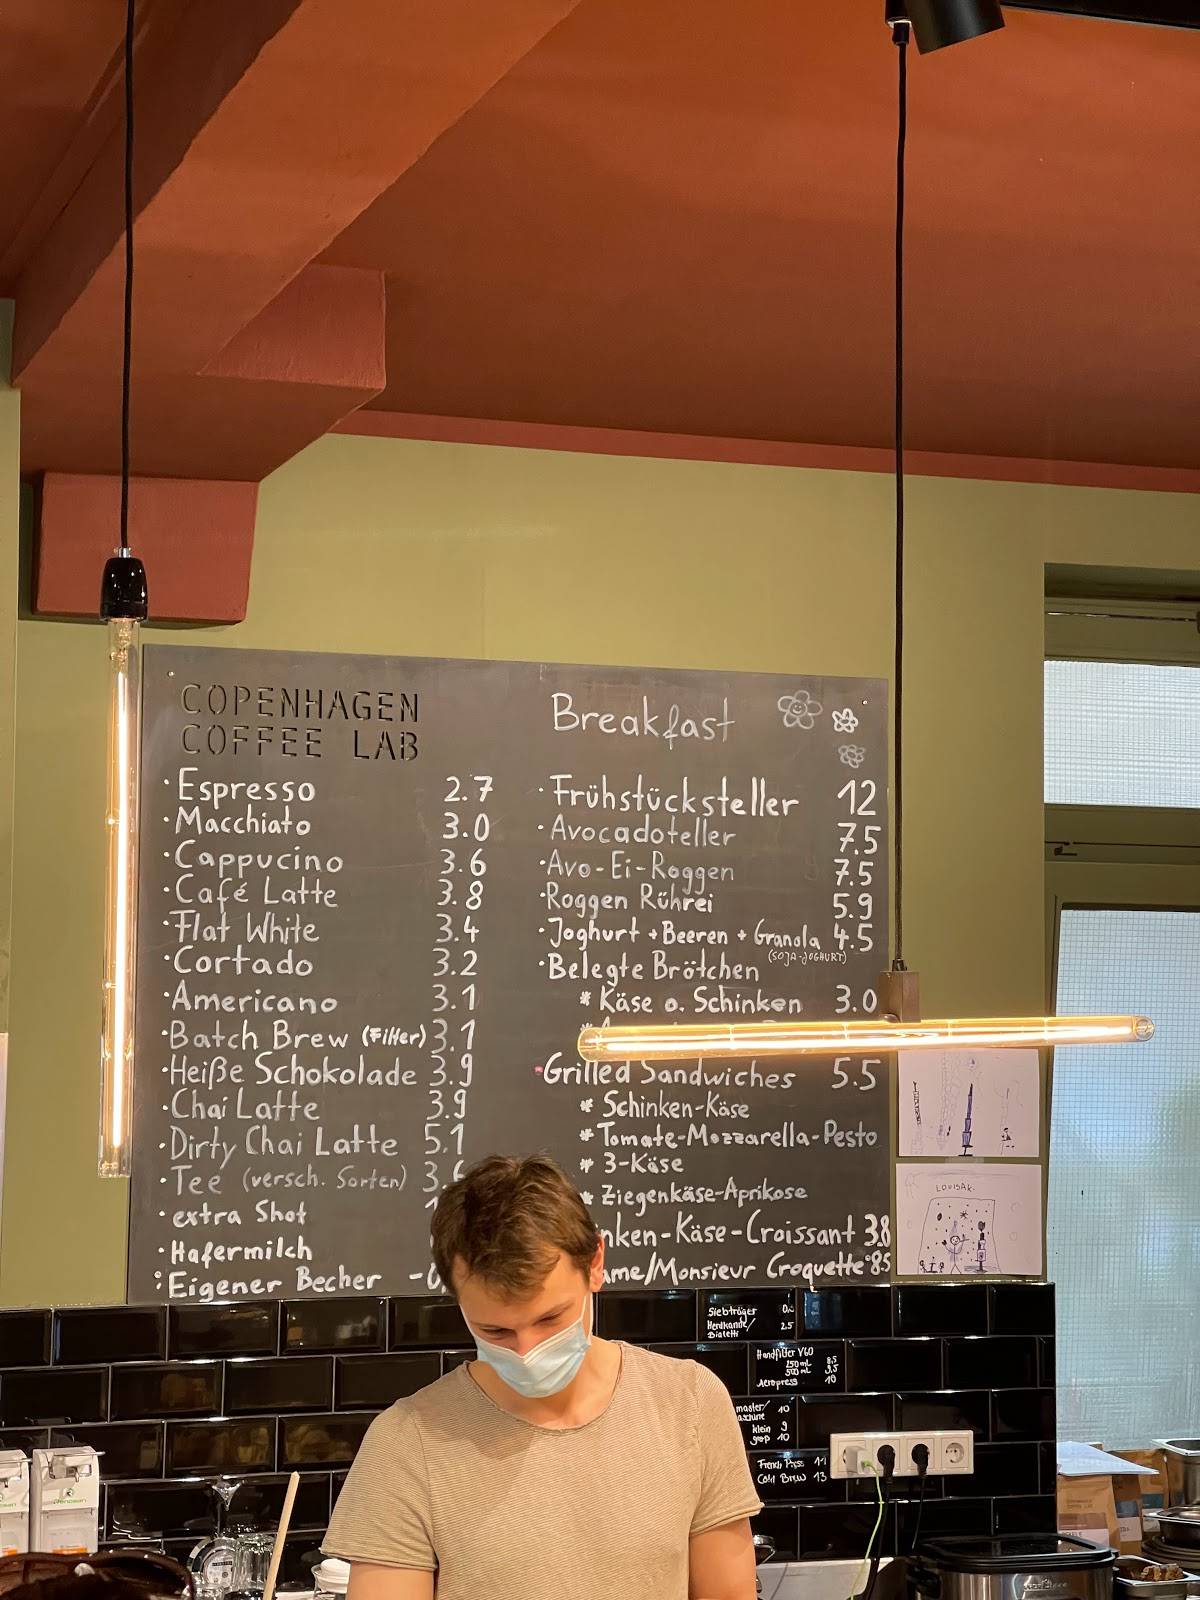 COPENHAGEN
COFFEE LAB
· Espresso 2.7
· Macchiato 3.0
· Cappucino 3.6
· Café Latte 3.8
· Flat White 3.4
· Cortado 3.2
· Americano 3.1
· Batch Brew (Filter) 3.1
· Heiße Schokolade 3.9
· Chai Latte 3.9
· Dirty Chai Latte 5.1
· Tee (versch. Sorten) 3.6
· extra Shot
· Hafermilch
· Eigener Becher
Breakfast
· Frühstücksteller 12
· Avocadoteller 7.5
· Avo-Ei-Roggen 7.5
· Roggen Rührei 5.9
· Joghurt + Beeren + Granola 4.5
(SOJA-JOGHURT)
· Belegte Brötchen
* Käse o. Schinken 3.0
· Grilled Sandwiches 5.5
* Schinken-Käse
* Tomate-Mozzarella-Pesto
* 3-Käse
* Ziegenkäse-Aprikose
nken-Käse-Croissant 3.8
ame/Monsieur Croquette 8.5
LOUISAK.
Siebträger
Herdkanne/ 2.5
Bialetti
Handfilter V60
250 mL 8.5
500 mL 9.5
Aeropress 10
master/ 10
aschine
klein 9
groß 10
French Press
Cold Brew 13